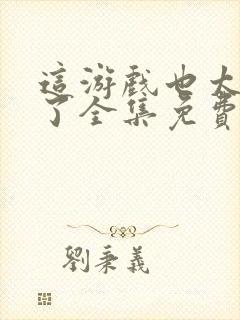 這游戲也太
了全集免費
劉秉義